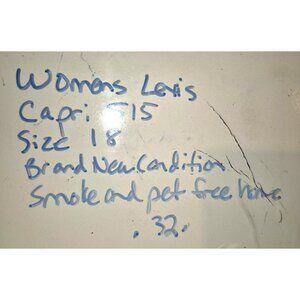 Womens Levis
Capri 515
Size 18
Brand New Condition
Smoke and pet free home
.32.